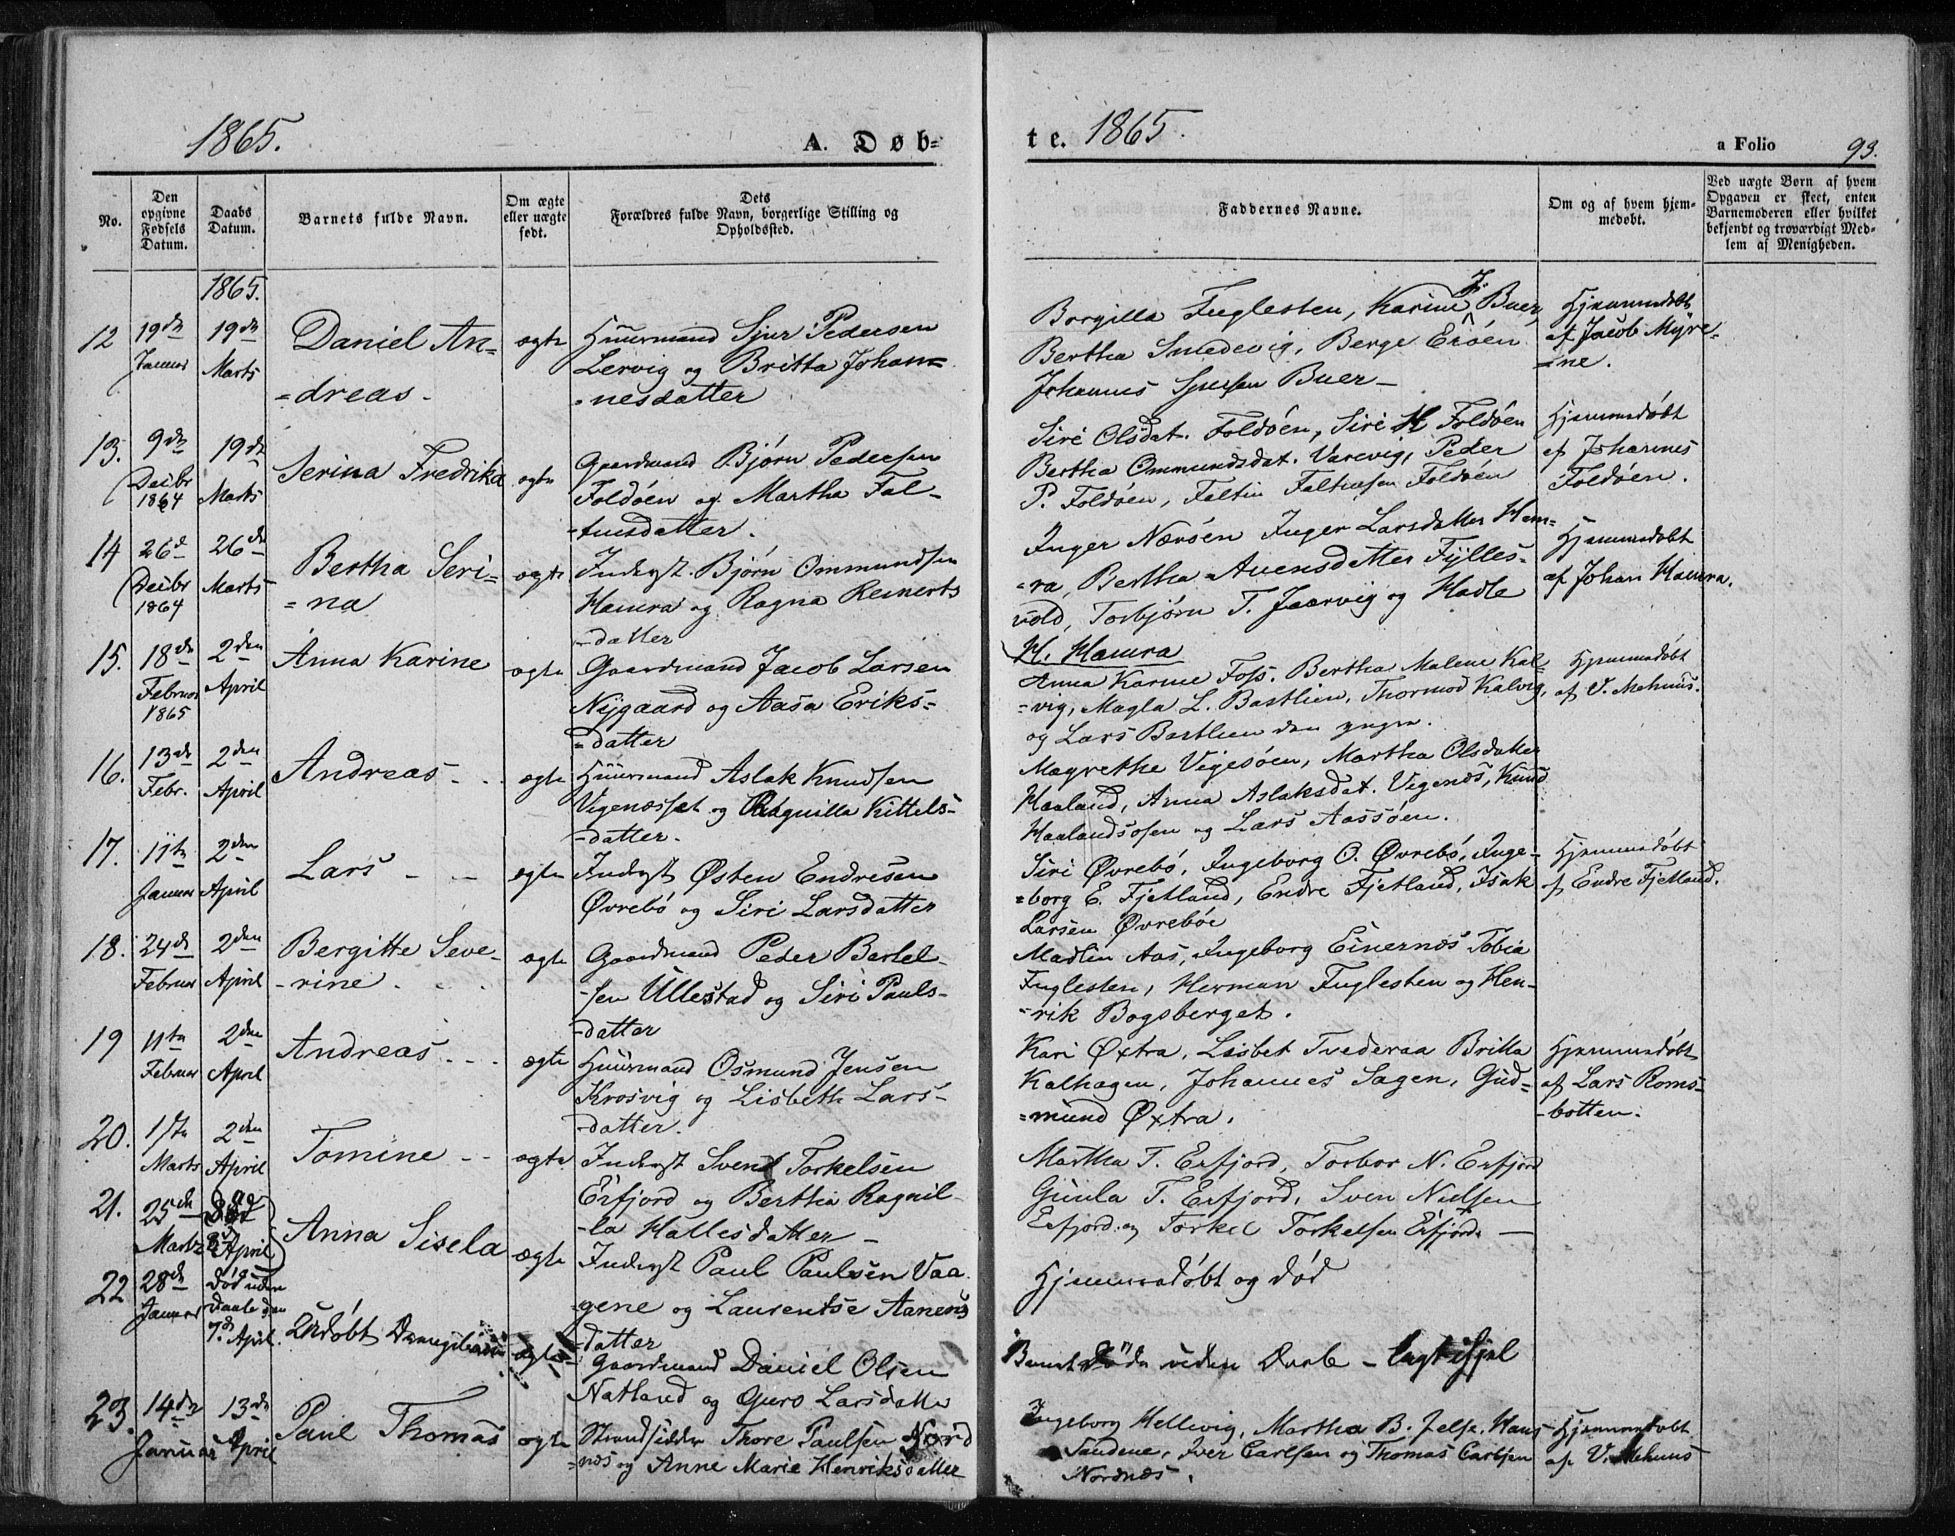 1865.
A. Døb-
te. 1865.
a Folio 93.
No.
Den opgivne Fødsels Datum.
Daabs Datum.
Barnets fulde Navn.
Om ægte eller uægte født.
Dets Forældres fulde Navn, borgerlige Stilling og Opholdssted.
Faddernes Navne.
Om og af hvem hjemmedøbt.
Ved uægte Børn af hvem Opgaven er skeet, enten Barnemoderen eller hvilket bekjendt og troværdigt Medlem af Menigheden.
1865.
12 19de Januar 19de Marts Daniel An-
=dreas.
ægte
Huusmand Sjur Pedersen
Lervig og Britta Johan-
=nesdatter
Borgilla Fuglesten, Karine J. Buer,
Bertha Smedevig, Berge Erøen
Johannes Sjursen Buer
Hjemmedøbt
af Jacob Myre-
=ne.
13. 9de Decbr 1864 19de Marts Serina Fredrika
ægte
Gaardmand Bjørn Pedersen
Foldøen og Martha Fal-
=tinsdatter.
Siri Olsdat. Foldøen, Siri H Foldøen
Bertha Ommundsdat. Varevig, Peder
P. Foldøen, Faltin Faltinsen Foldøen
Hjemmedøbt
af Johannes
Foldøen.
14 26de Decbr 1864 26de Marts Bertha Seri-
=na
ægte
Inderst Bjørn Ommundsen
Hamra og Ragna Reinerts
-datter
Inger Nærøen Inger Larsdatter Ham-
=ra, Bertha Auensdatter Fylles-
vold, Torbjørn T. Jaarvig og Hadle
H. Hamra
Hjemmedøbt
af Johan Hamra.
15. 18de Februar 1865 2den April Anna Karine
ægte
Gaardmand Jacob Larsen
Nygaard og Aasa Eriks-
=datter
Anna Karine Foss. Bertha Malene Kal-
=vig, Magla L. Bastlien, Thormod Kalvig,
og Lars Bastlien den yngre.
Hjemmedøbt
af V. Mehuus.
16. 13de Febr. 2den April Andreas
ægte
Huusmand Aslak Knudsen
Vigenæsset og Ragnilla Kittels-
-datter.
Magrethe Vigesøen, Martha Olsdatter
Haaland, Anna Aslaksdat. Vigenæs, Knud
Haalandsosen og Lars Aassøen.
17. 11te Januar 2den April Lars
ægte
Inderst Østen Endresen
Øvrebø og Siri Larsdatter
Siri Øvrebø, Ingeborg O. Øvrebø, Inge-
=borg E. Fjetland, Endre Fjetland, Isak
Larsen Øvrebøe
Hjemmedøbt
af Endre Fjetland.
18. 24de Februar 2den April Bergitte Seve-
-rine
ægte
Gaardmand Peder Bertel-
-sen Ullestad og Siri Pauls-
-datter
Madlin Aas, Ingeborg Einernæs Tobia
Fuglesten, Herman Fuglesten og Hen-
-rik Bogsberget.
19 11te Februar 2den April Andreas
ægte
Huusmand Osmund Jensen
Krosvig og Lisbeth Lars-
-datter.
Kari Øxtra, Lisbet Tvederaa Britta
Kalhagen, Johannes Sagen, Gud-
=mund Øxtra.
Hjemmedøbt
af Lars Roms-
-botten.
20. 17te Marts 2den April Tomine
ægte
Inderst Svend Torkelsen
Erfjord og Bertha Ragnil-
-la Hallesdatter
Martha T. Erfjord, Torbor N. Erfjord
Gunla T. Erfjord, Sven Nielsen
Erfjord og Torkel Torkelsen Erfjord
21. 25de Marts April Anna Sisela
ægte
Inderst Paul Paulsen Vaa-
gene og Laurentse Aanens
datter
Hjemmedøbt og død
22 28de Januar Død uden Daab den 7de April Udøbt Drengebarn
ægte
Gaardmand Daniel Olsen
Natland og Guro Larsdatter
Barnet døde uden Daab
23. 14de Januar 13de April Paul Thomas
ægte
Strandsidder Thore Paulsen Nord
=næs og Anne Marie Henriksdatter
Ingeborg Hellevig, Martha B. Jelse, Hans
Sandene, Iver Carlsen og Thomas Carlsen
Nordnæs.
Hjemmedøbt
af V. Mehuus